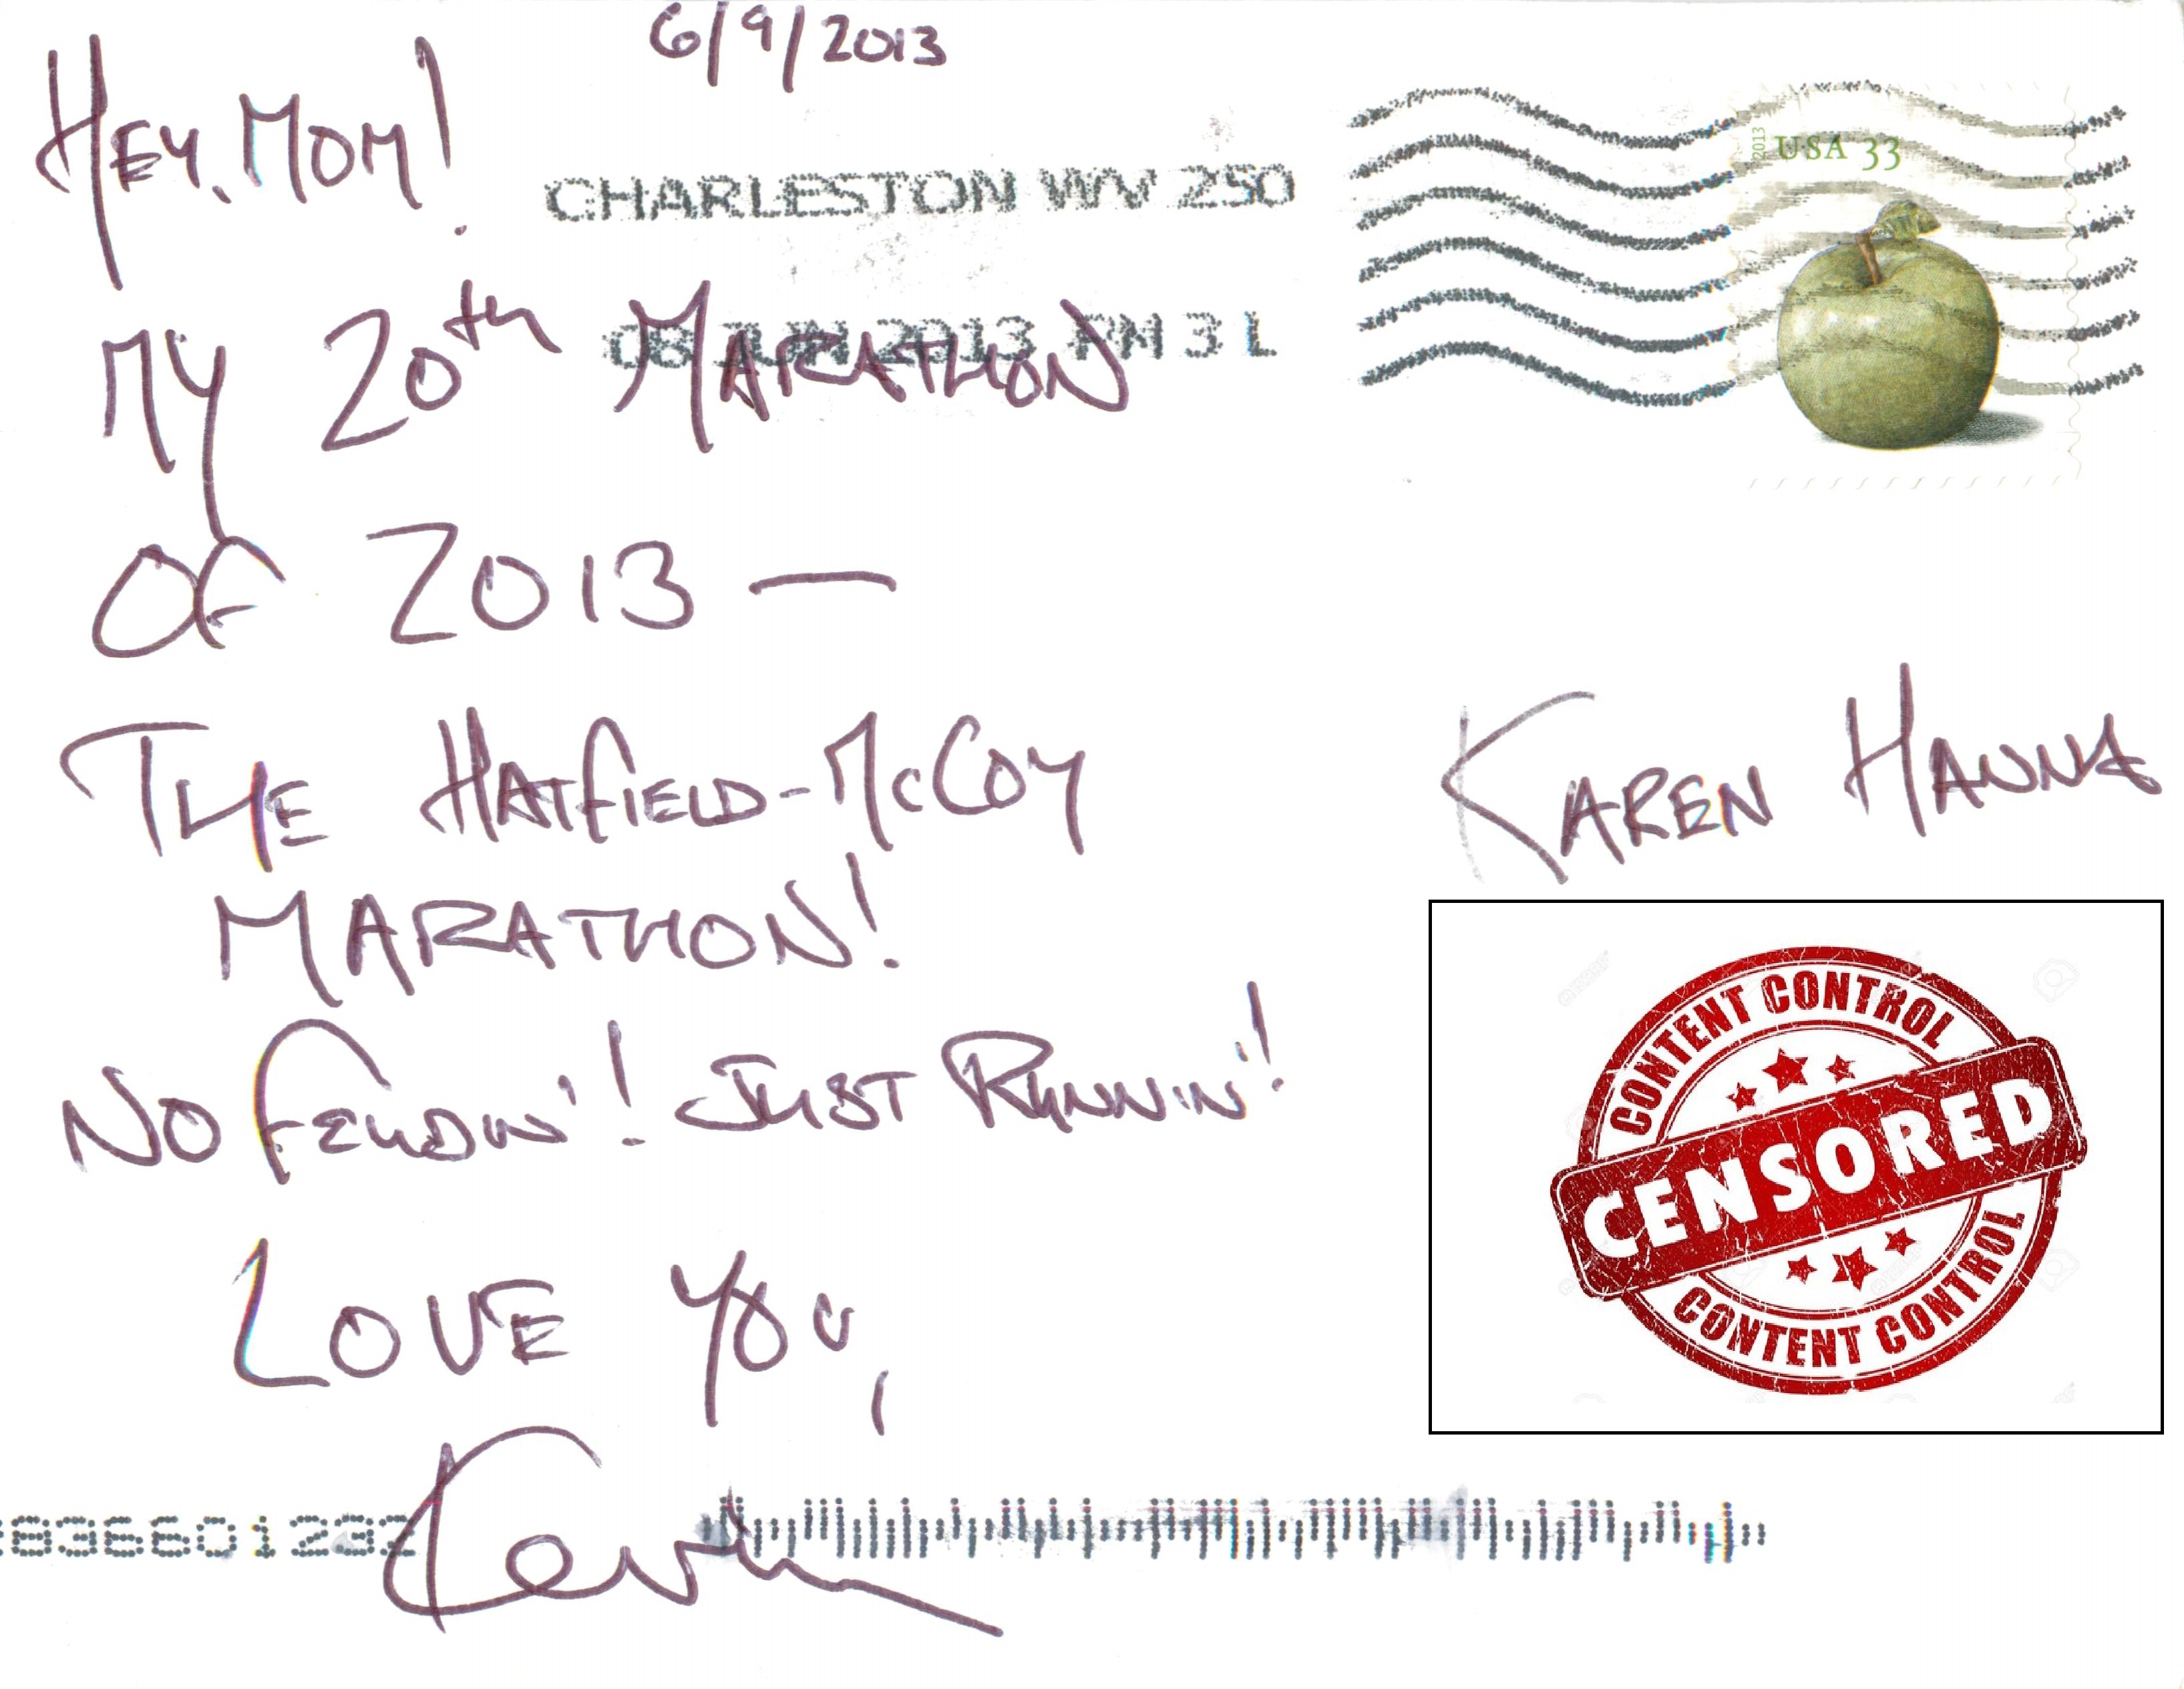 6/9/2013
HEY, MOM!
CHARLESTON WV 250
USA 33
2013
08 JUN 2013 PM 3 L
MY 20th MARATHON
OF 2013 —
THE HATFIELD-McCOY
MARATHON!
NO FEUDIN'! JUST RUNNIN'!
LOVE YOU,
Kevin
KAREN HANNA
CONTENT CONTROL
CENSORED
CONTENT CONTROL
836601232